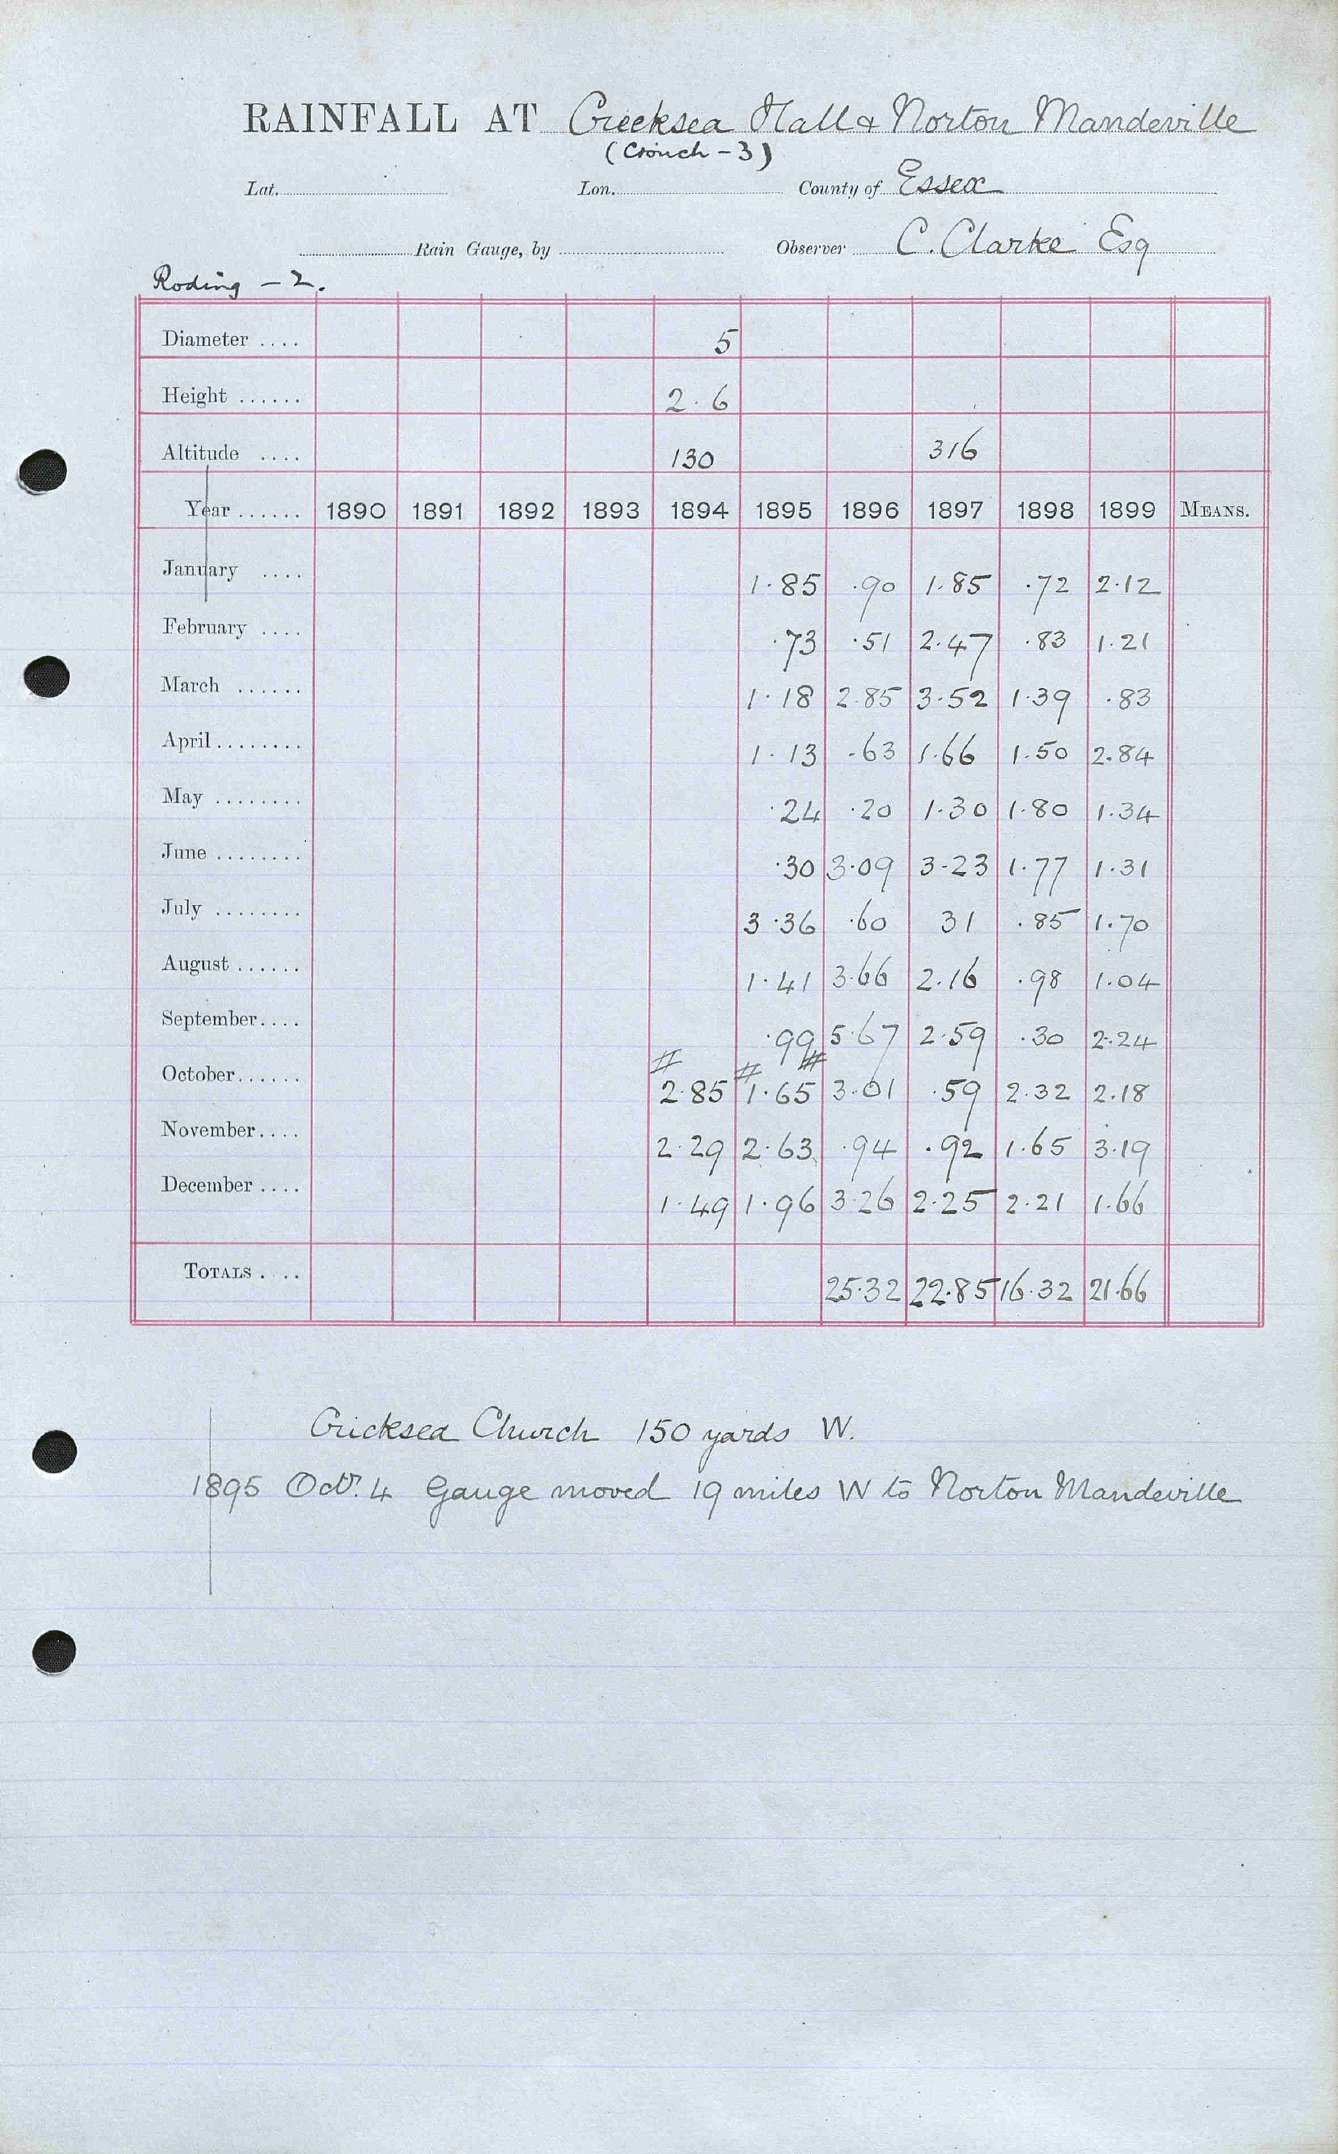 RAINFALL AT Creeksea Hall & Norton Mandeville
(Crouch - 3)
Lat. Lon. County of Essex
Rain Gauge, by Observer C. Clarke Esq
Roding - 2.
Diameter .... 5
Height ...... 2.6
Altitude .... 130 316
Year ...... 1890 1891 1892 1893 1894 1895 1896 1897 1898 1899 MEANS.
January .... 1.85 .90 1.85 .72 2.12
February .... .73 .51 2.47 .83 1.21
March ...... 1.18 2.85 3.52 1.39 .83
April ........ 1.13 .63 1.66 1.50 2.84
May ........ .24 .20 1.30 1.80 1.34
June ........ .30 3.09 3.23 1.77 1.31
July ........ 3.36 .60 31 .85 1.70
August ...... 1.41 3.66 2.16 .98 1.04
September.... .99 5.67 2.59 .30 2.24
# # #
October...... 2.85 1.65 3.01 .59 2.32 2.18
November.... 2.29 2.63 .94 .92 1.65 3.19
December .... 1.49 1.96 3.26 2.25 2.21 1.66
TOTALS .... 25.32 22.85 16.32 21.66
Cricksea Church 150 yards W.
1895 Octr. 4 Gauge moved 19 miles W to Norton Mandeville